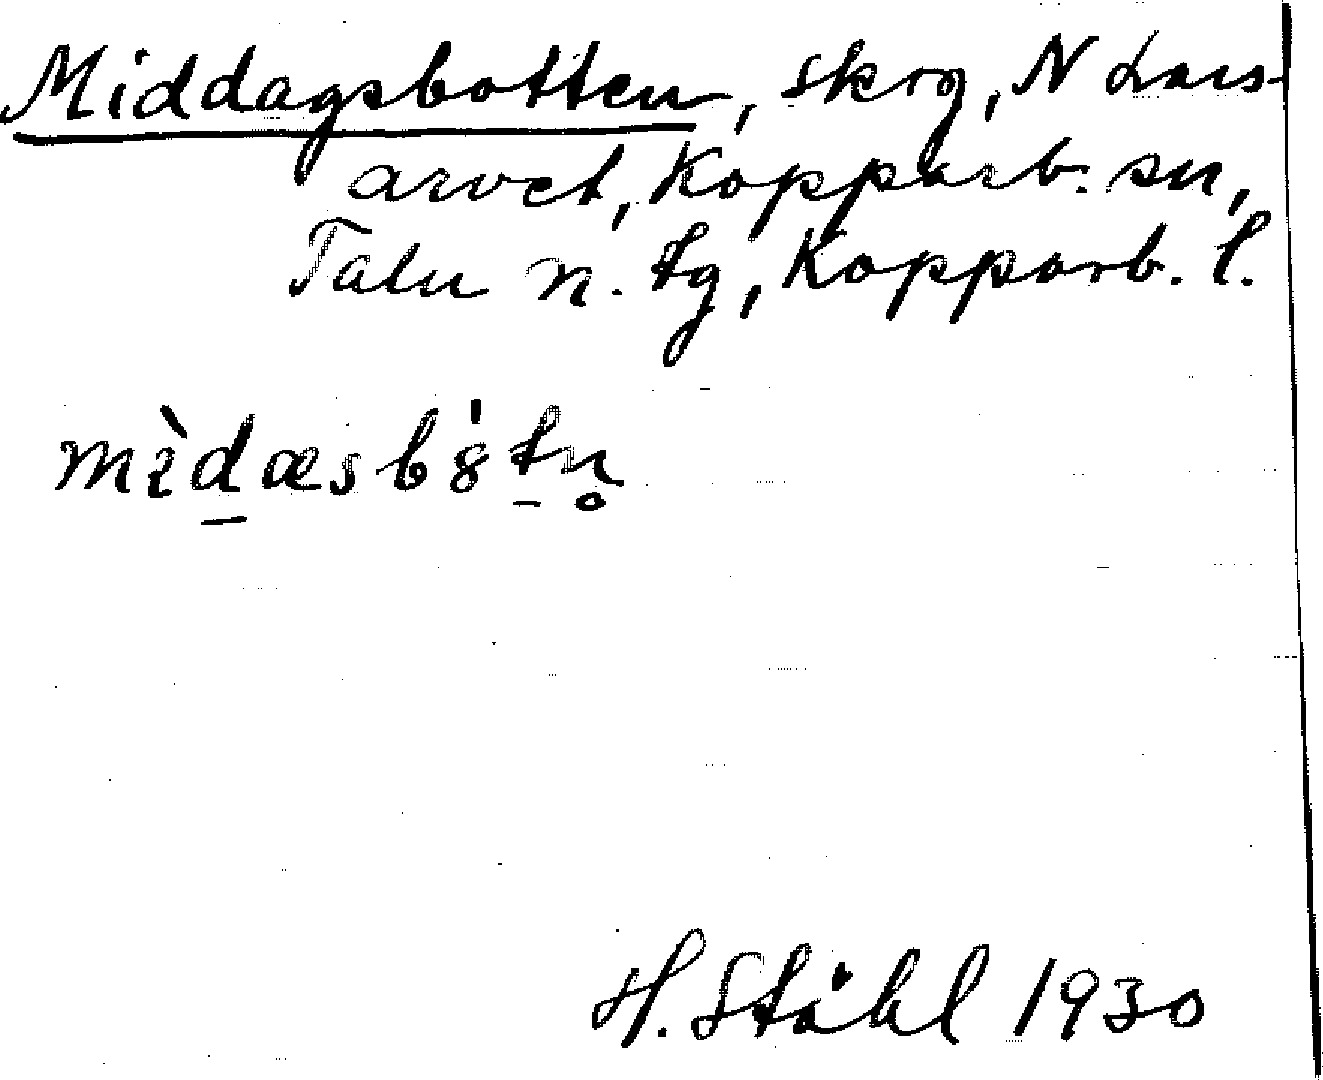 Middagsbotten, skrg, N Lars-
arvet, Kopparb. sn,
Falu n. tg, Kopparb. l.
mìdæsb8́tn̥
H. Ståhl 1930